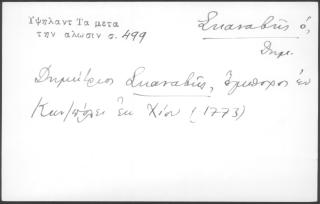 Υψηλαντ Τα μετα
την αλωσιν σ. 499
Σκαναβῆς ὁ,
Δημ.
Δημήτριος Σκαναβῆς, ἔμπορος ἐν
Κων/πόλει ἐκ Χίου (1773)